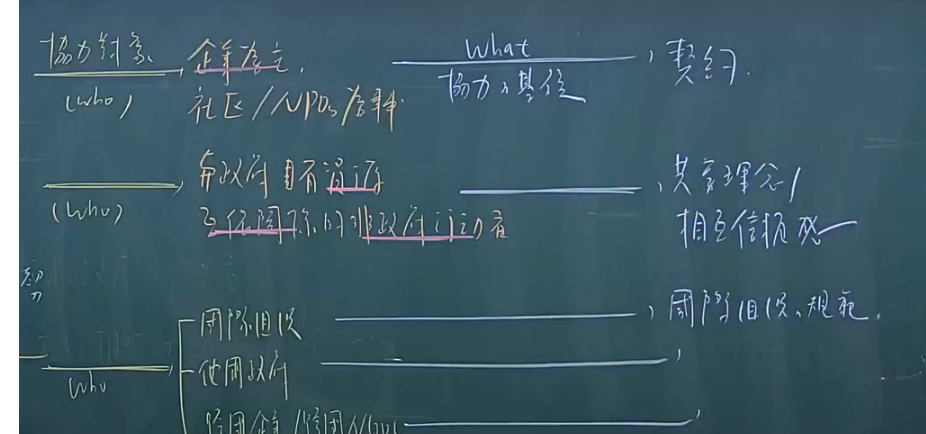 協力對象 企業為主, What 契約.
(who) 社区/NPOs為輔. 協力之基住
與政府具有資源 共享理念/
(who) 互依關係的非政府行動者 相互信賴感
國際組織 國際組織、規範.
who 他國政府
跨國企業/跨國NGOs